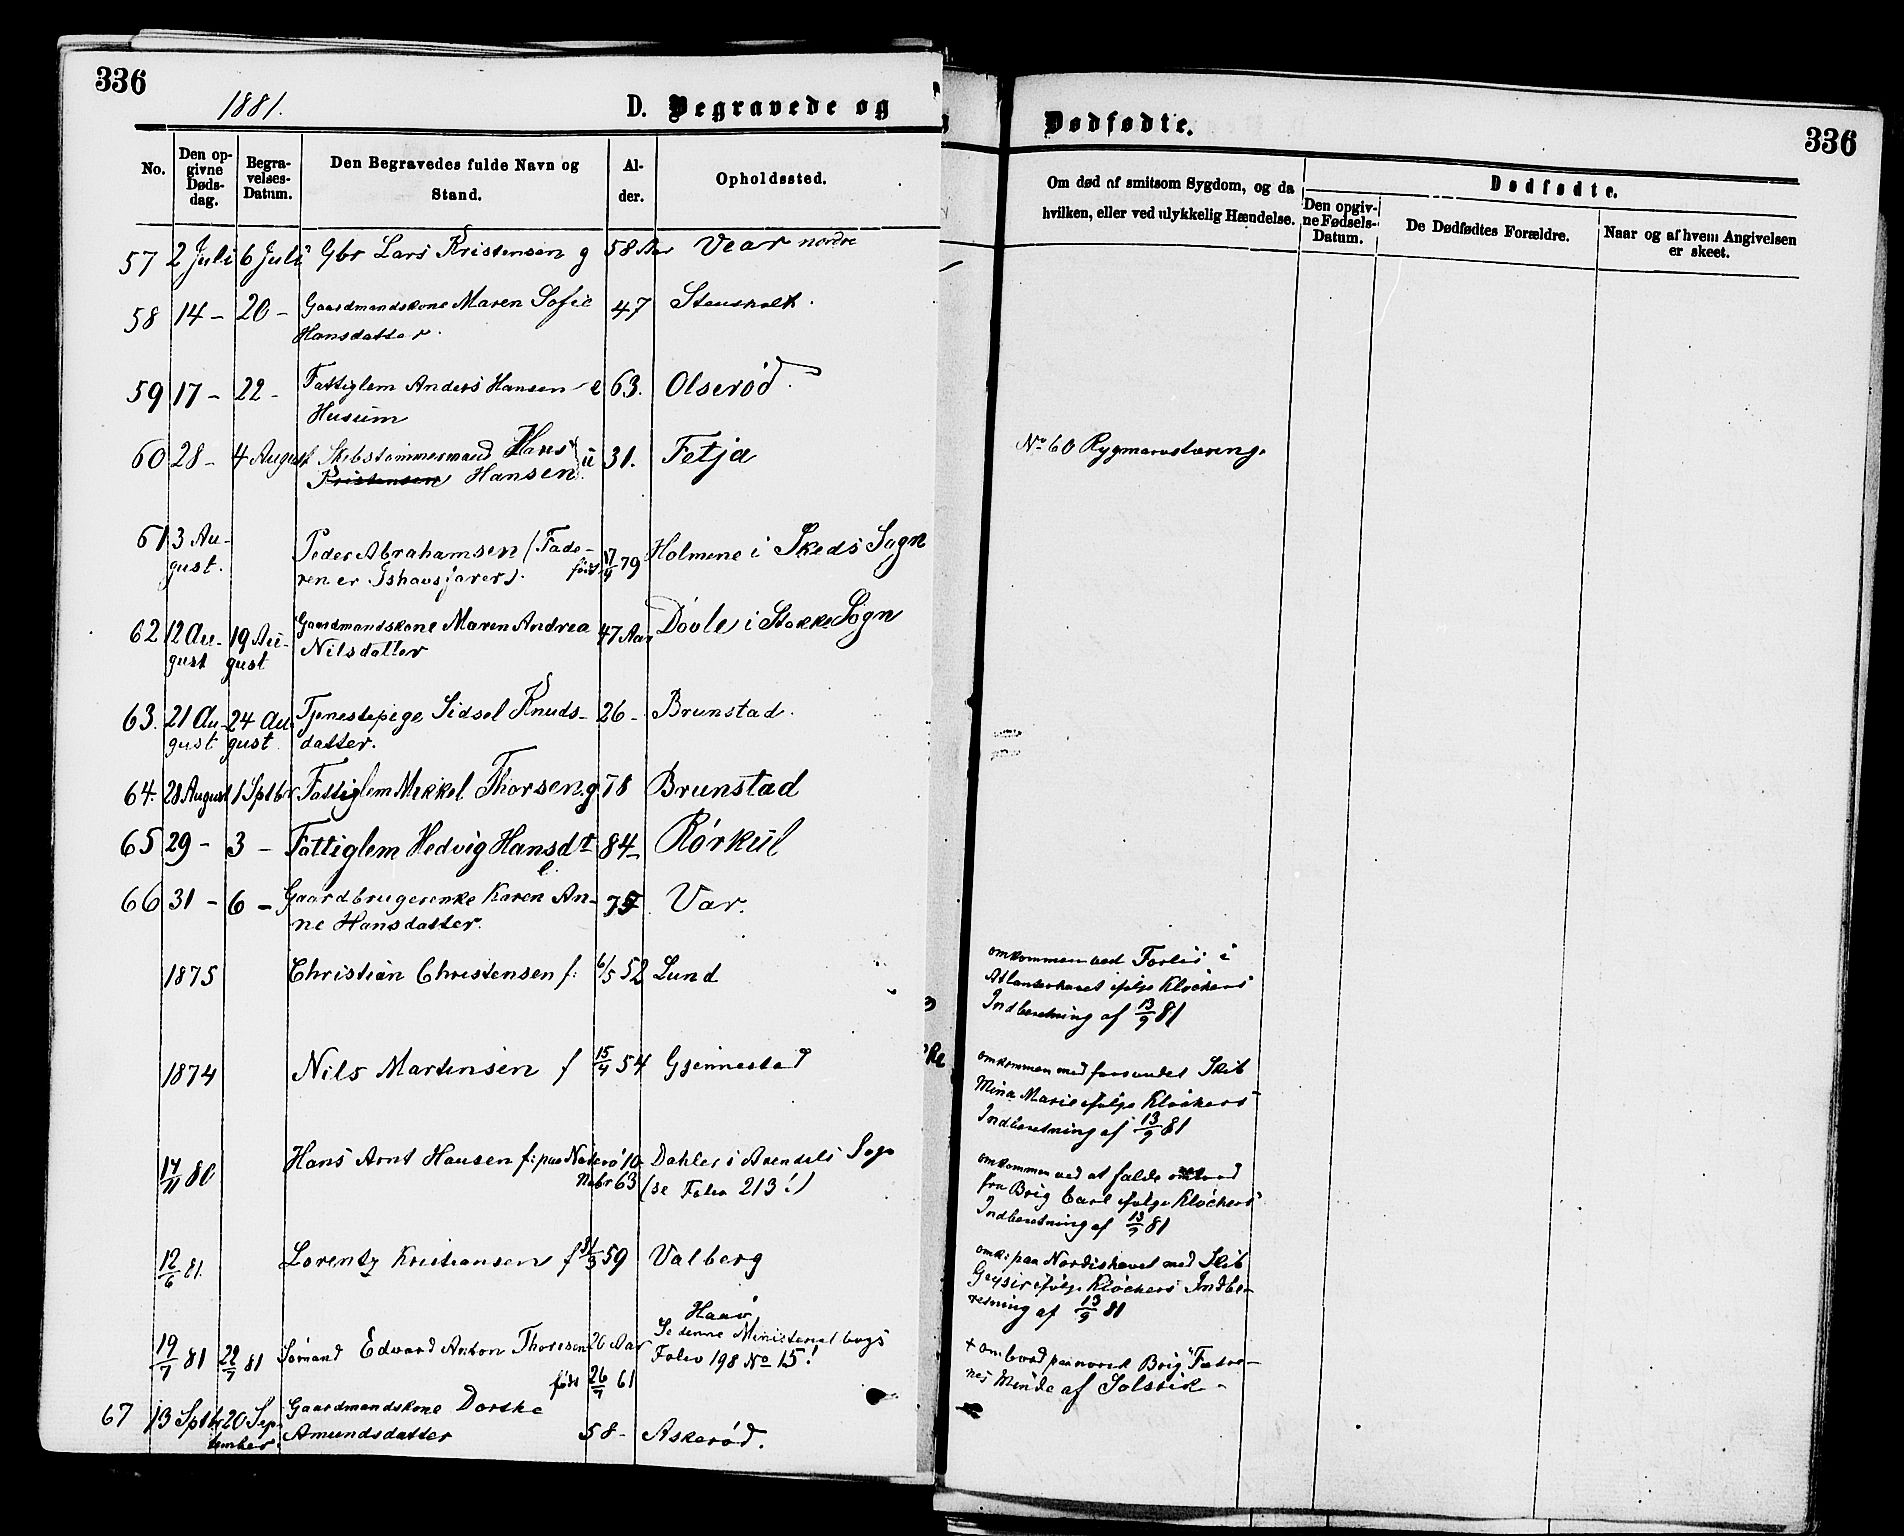 336
1881.
D. Begravede og
No.
Den op-
givne
Døds-
dag.
Begra-
velses-
Datum.
Den Begravedes fulde Navn og
Stand.
Al-
der.
Opholdssted.
57 2 Juli 6 Juli Gbr Lars Kristensen g 58 Aar Vear nordre
58 14 - 20 - Gaardmandskone Maren Sofie 47 Stensholt.
Hansdatter.
59 17 - 22 - Fattiglem Anders Hansen e 63. Olserød.
Husum
60 28 - 4 August Skibstømmermand Hans u 31. Fetja
Kristensen Hansen
61 3 Au- Peder Abrahamsen (Fade- 17/4 79 Holmene i Skeds Sogn
gust. ren er Ishavsfarer). født
62 12 Au- 19 Au- Gaardmandskone Maren Andrea 47 Aar Døvle i Stokke Sogn
gust gust Nilsdatter
63. 21 Au- 24 Au Tjenestepige Sidsel Knuds- 26 - Brunstad.
gust gust datter.
64. 28 August 1 Sptbr Fattiglem Mikkel Thorsen g 78 Brunstad
65 29 - 3 - Fattiglem Hedvig Hansdt 84 - Rørkul
e
66 31 - 6 - Gaardbrugerenke Karen An- 75. Var.
ne Hansdatter.
1875 Christian Christensen f: 6/5 52 Lund
1874 Nils Martinsen f 15/4 54 Gjennestad
14/11 80 Hans Arnt Hansen f: paa Nøterø 10 Dahler i Arendals Sogn
Novbr 63 (se Folio 213!)
12/6 81. Lorentz Kristiansen f 31/3 59 Valberg
Haav
19/7 81 29/7 81 Sømand Edvard Anton Thoresen 20 Aar Se denne Ministerialbogs
Folio 198 No 15!
født 26/7 61
67 13 Sptbr 20 Sep- Gaardmandskone Dorthe
tember. Amundsdatter 58 - Askerød.
Dødfødte.
336
Om død af smitsom Sygdom, og da
hvilken, eller ved ulykkelig Hændelse.
Dødfødte.
Den opgiv-
ne Fødsels-
Datum.
De Dødfødtes Forældre.
Naar og af hvem Angivelsen
er skeet.
No 60 Rygmarvstæring.
omkommen ved Forlis i
Atlanterhavet ifølge Klokkers
Indberetning af 13/9 81
omkommen med forsvundet Skib
Mina Marie ifølge Klokkers
Indberetning af 13/9 81
omkommen ved at falde ombord
fra Brig Carl ifølge Klokkers
Indberetning af 13/9 81
omk: paa Nordishavet med Skib
Geysir ifølge Klokkers Indbe-
retning af 13/9 81
+ ombord paa norsk Brig "Fædre-
nes Minde af Solsvik -